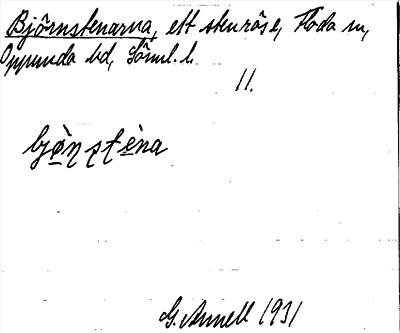 Björnstenarna, ett stenröse, Floda sn,
Oppunda hd, Söml. l.
11.
bjø̀ṇṣtèna
G. Annell 1931